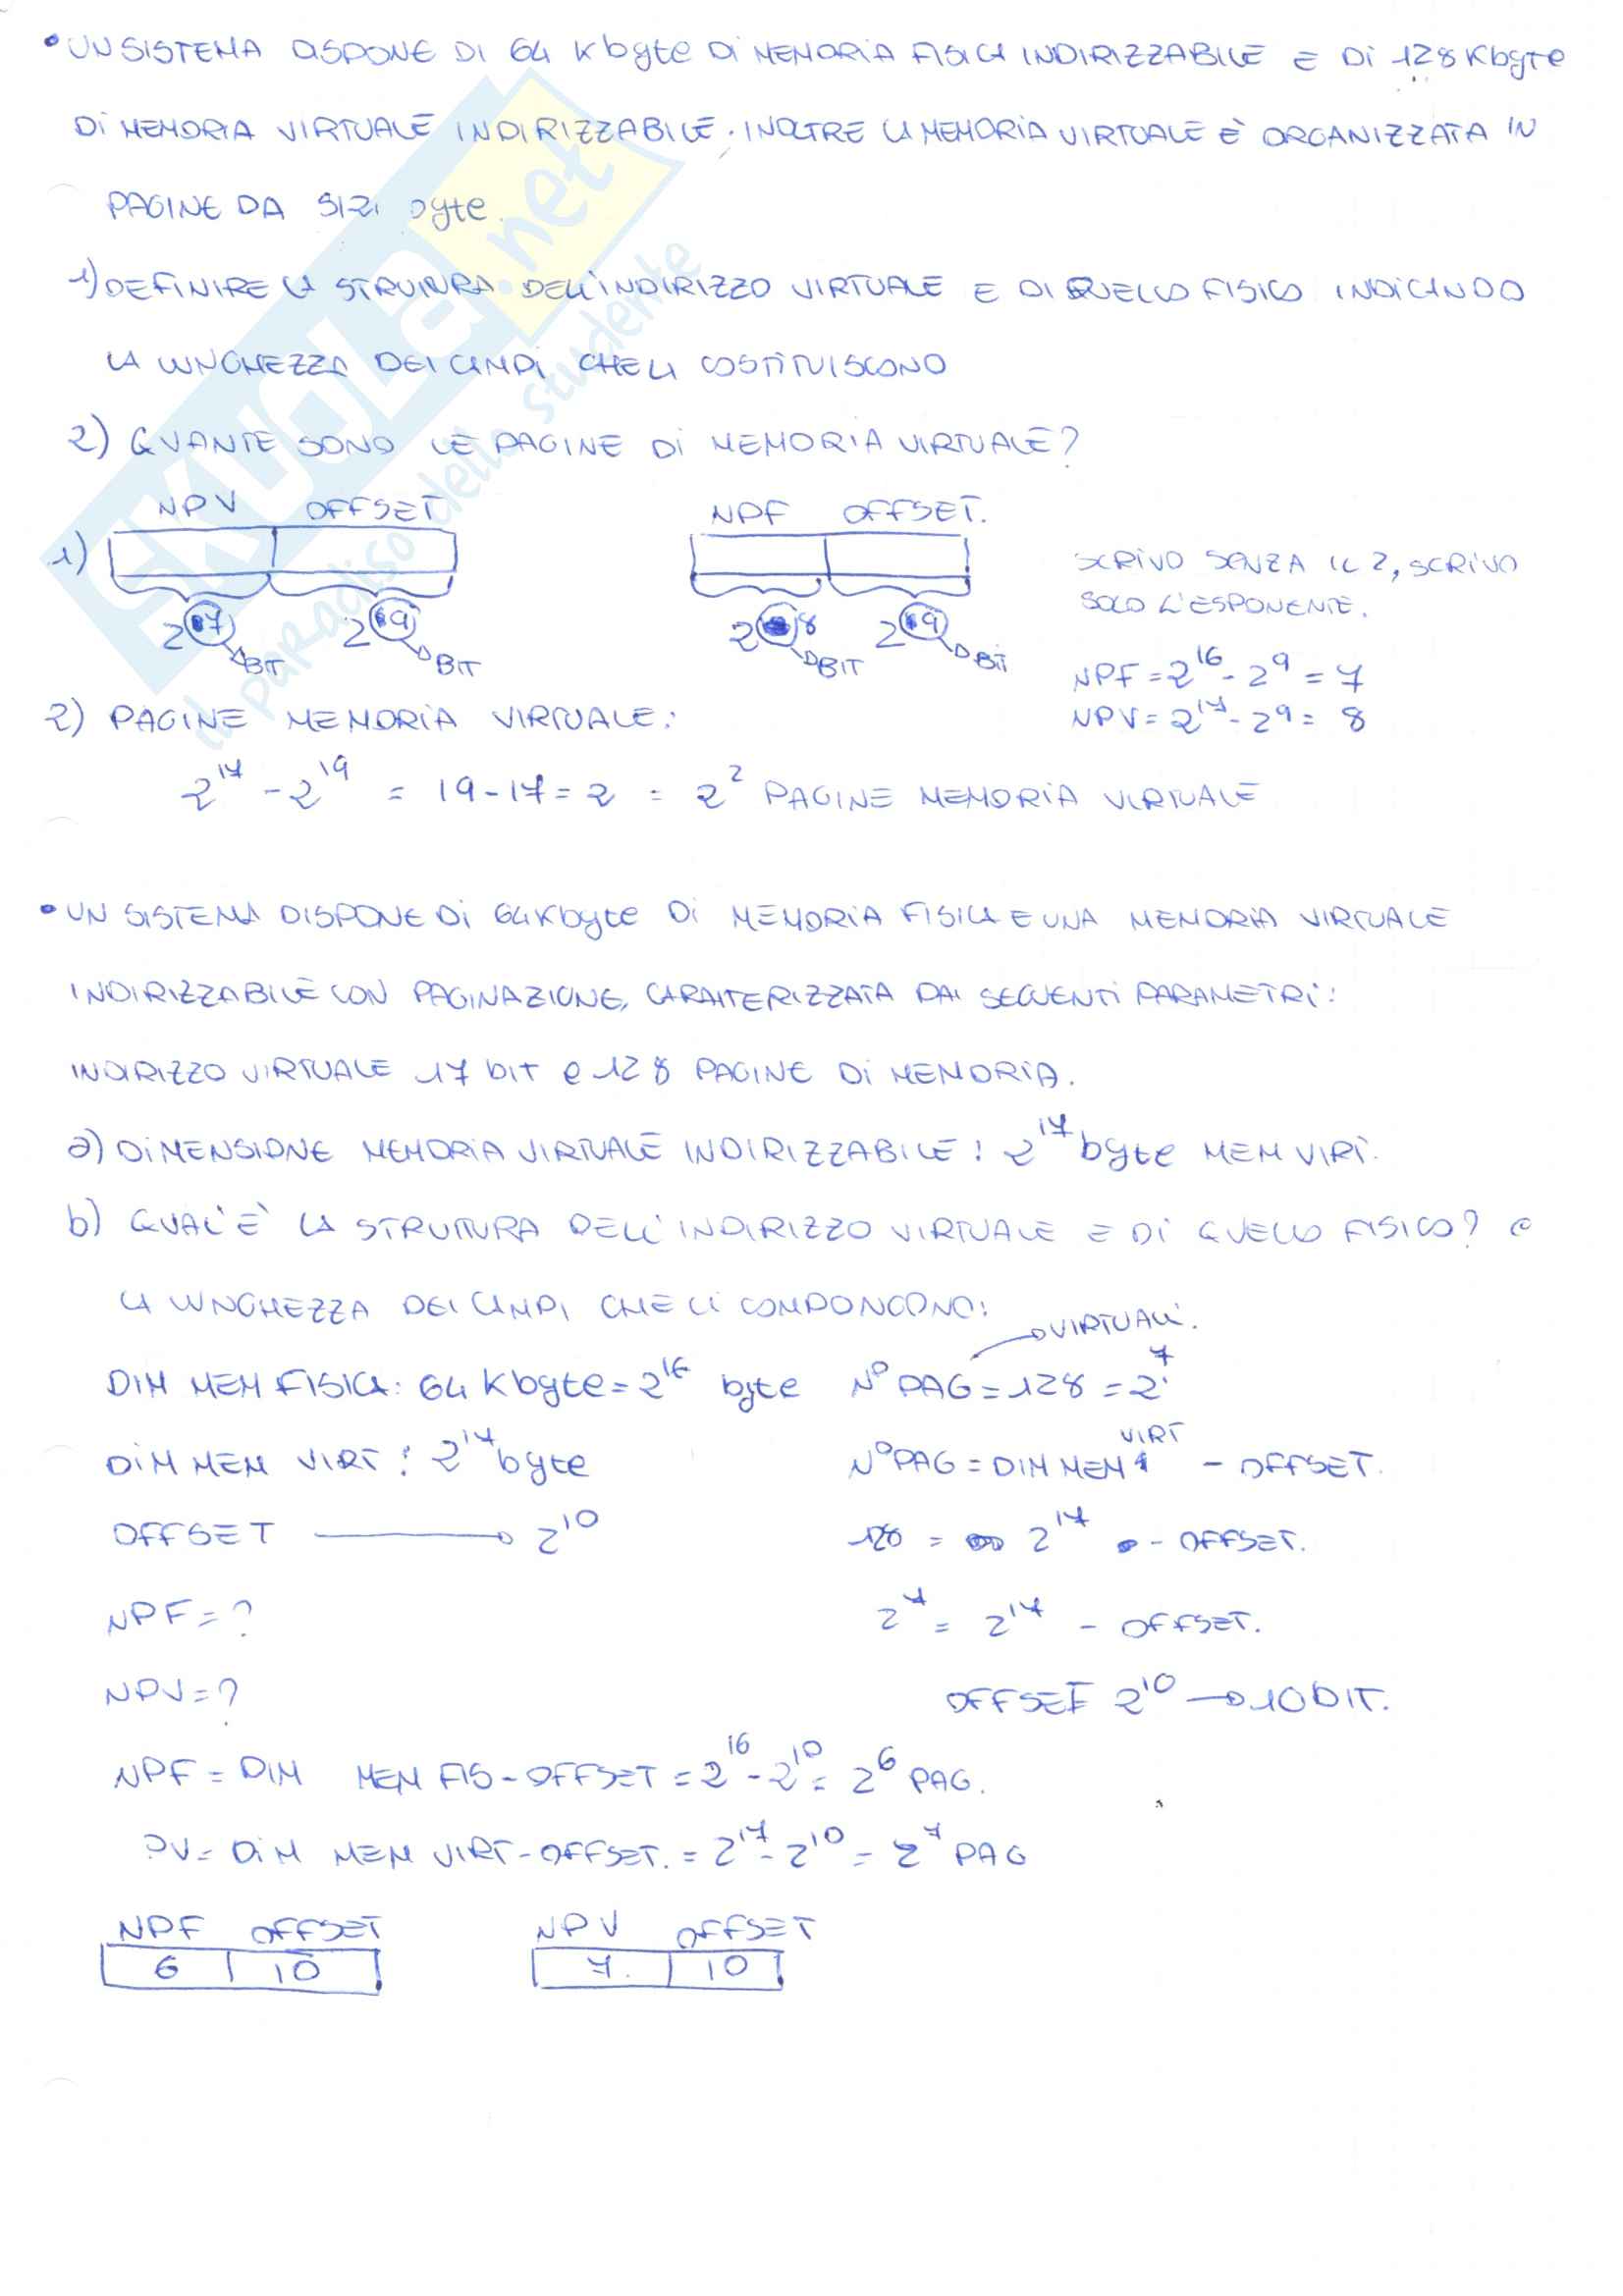 • UN SISTEMA DISPONE DI 64 Kbyte DI MEMORIA FISICA INDIRIZZABILE E DI 128 Kbyte
DI MEMORIA VIRTUALE INDIRIZZABILE. INOLTRE LA MEMORIA VIRTUALE È ORGANIZZATA IN
PAGINE DA 512 byte.
1) DEFINIRE LA STRUTTURA DELL'INDIRIZZO VIRTUALE E DI QUELLO FISICO INDICANDO
LA LUNGHEZZA DEI CAMPI CHE LI COSTITUISCONO
2) QUANTE SONO LE PAGINE DI MEMORIA VIRTUALE?
NPV OFFSET NPF OFFSET.
1) SCRIVO SENZA IL 2, SCRIVO
SOLO L'ESPONENTE.
2^7 → BIT 2^9 → BIT 2^8 → BIT 2^9 → BIT
NPF = 2^16 - 2^9 = 7
NPV = 2^17 - 2^9 = 8
2) PAGINE MEMORIA VIRTUALE:
2^17 - 2^19 = 19 - 17 = 2 = 2^2 PAGINE MEMORIA VIRTUALE
• UN SISTEMA DISPONE DI 64 Kbyte DI MEMORIA FISICA E UNA MEMORIA VIRTUALE
INDIRIZZABILE CON PAGINAZIONE, CARATTERIZZATA DAI SEGUENTI PARAMETRI:
INDIRIZZO VIRTUALE 17 bit e 128 PAGINE DI MEMORIA.
a) DIMENSIONE MEMORIA VIRTUALE INDIRIZZABILE: 2^17 byte MEM VIRT.
b) QUAL'È LA STRUTTURA DELL'INDIRIZZO VIRTUALE E DI QUELLO FISICO? e
LA LUNGHEZZA DEI CAMPI CHE LI COMPONGONO:
→ VIRTUALI.
DIM MEM FISICA: 64 Kbyte = 2^16 byte N° PAG = 128 = 2^7
DIM MEM VIRT: 2^17 byte N° PAG = DIM MEM VIRT - OFFSET.
OFFSET → 2^10 128 = 2^17 - OFFSET.
NPF = ? 2^7 = 2^17 - OFFSET.
NPV = ? OFFSET 2^10 → 10 BIT.
NPF = DIM MEM FIS - OFFSET = 2^16 - 2^10 = 2^6 PAG.
PV = DIM MEM VIRT - OFFSET. = 2^17 - 2^10 = 2^7 PAG
NPF OFFSET NPV OFFSET
6 10 7 10
SKUOLA.net
il paradiso dello studente